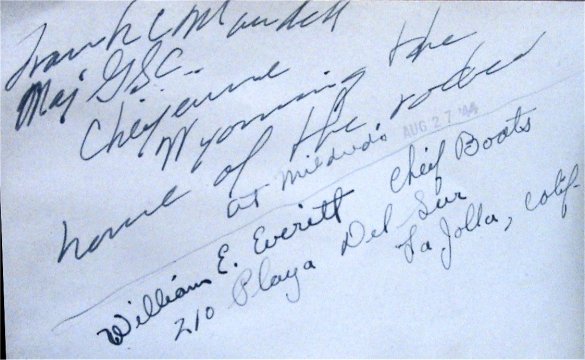 Frank C Mandell
Maj GSC.
Cheyenne
Wyoming the
home of the rodeo
at Mildred's AUG 27 '44
William E. Everitt Cheif Boats
210 Playa Del Sur
La Jolla, Calif